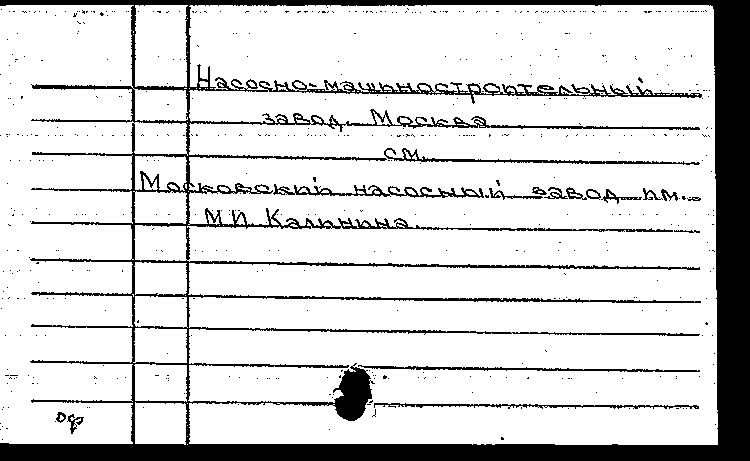 Насосно-машиностроительный
завод. Москва
см.
Московский насосный завод им.
М.И. Калинина.
оф